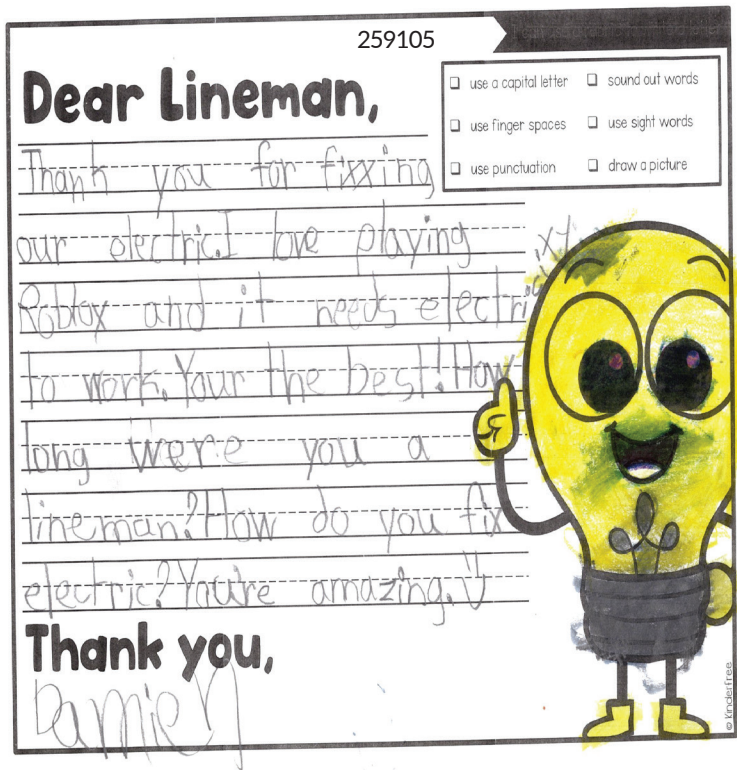 259105
Dear Lineman,
use a capital letter
sound out words
use finger spaces
use sight words
use punctuation
draw a picture
Thank you for fixxing
our electric.I love playing
Roblox and it needs electri
to work.Your the best!How
long were you a
lineman?How do you fix
electric?You're amazing.
Thank you,
Damien
© KinderFree